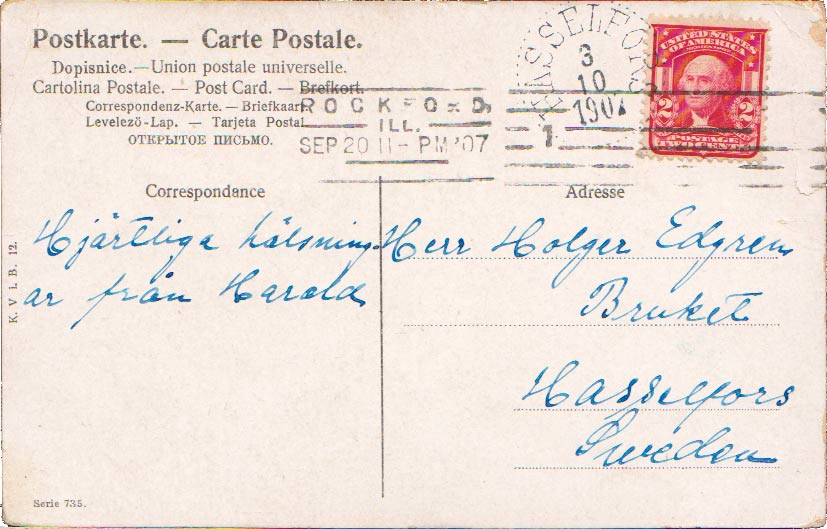 Postkarte. — Carte Postale.
Dopisnice.—Union postale universelle.
Cartolina Postale. — Post Card. — Brefkort.
Correspondenz-Karte. — Briefkaart
Levelezö-Lap. — Tarjeta Postal
ОТКРЫТОЕ ПИСЬМО.
ROCKFORD,
ILL.
SEP 20 11- PM '07
HASSELFORS
3
10
1907
1
UNITED STATES
OF AMERICA
2 2
POSTAGE
TWO CENTS
Correspondance
Hjärtliga hälsning-
ar från Harald
Adresse
Herr Holger Edgren
Bruket
Hasselfors
Sweden
K. V i. B. 12.
Serie 735.